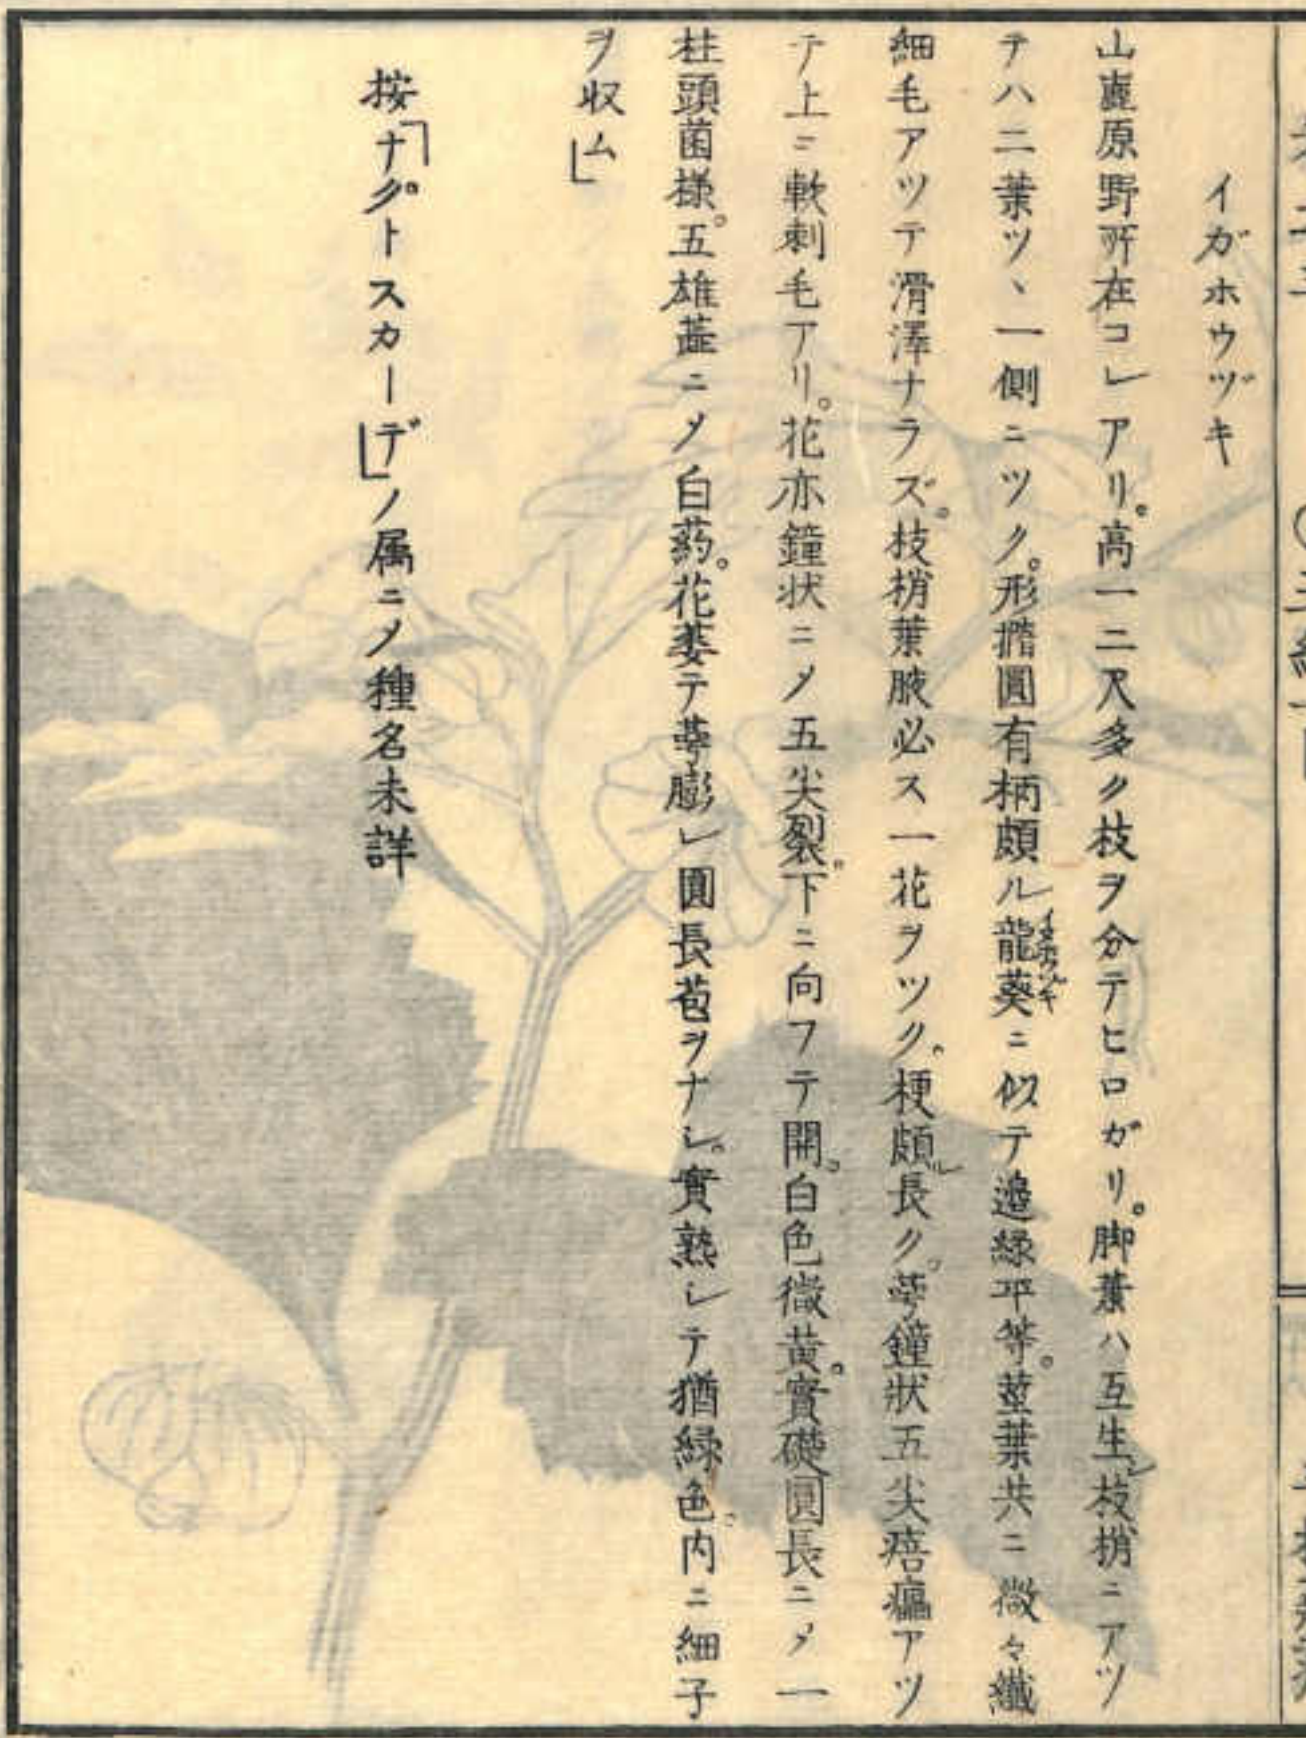 イガホウヅキ
山麓原野所在コレアリ。高一二尺多ク枝ヲ分テヒロガリ。脚葉ハ互生シ枝梢ニアツ
テハ二葉ツヽ一側ニツク。形橢圓有柄頗ル龍葵ニ似テ邊緣平等。莖葉共ニ微々纖
細毛アツテ滑澤ナラズ。枝梢葉腋必ス一花ヲツク。梗頗ル長ク。萼鐘狀五尖痦㿔アツ
テ上ニ軟刺毛アリ。花亦鐘状ニ乄五尖裂。下ニ向フテ開。白色微黄。實礎圓長ニ乄一
柱頭菌様。五雄蕋ニ乄白葯。花萎テ萼膨レ圓長苞ヲナシ。實熟シテ猶緑色。内ニ細子
ヲ収ム」
按「ナク゚トスカーデ」ノ属ニ乄種名未詳